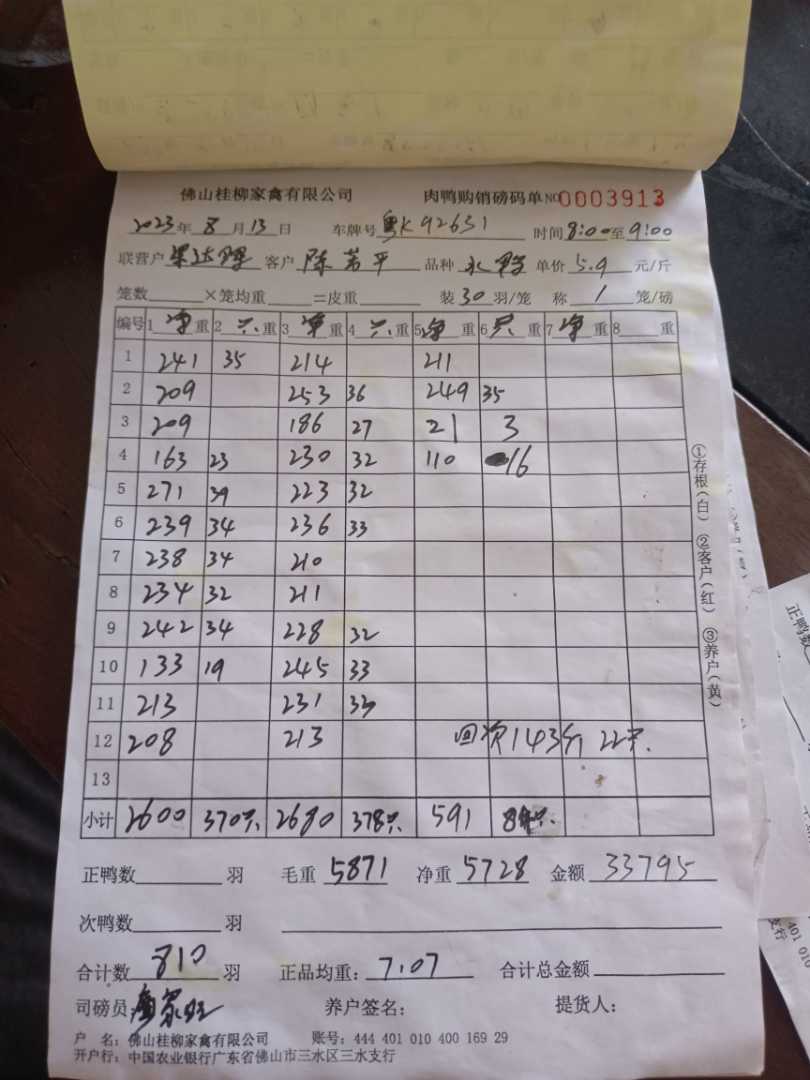 佛山桂柳家禽有限公司 肉鸭购销磅码单 NO 0003913
2023年 8 月 13 日 车牌号 粤K92631 时间 8:00 至 9:00
联营户 客户 陈 平 品种 水鸭 单价 5.9 元/斤
笼数 ×笼均重 =皮重 装 30 羽/笼 称 1 笼/磅
编号 1 净 重 2 只 重 3 净 重 4 只 重 5 净 重 6 只 重 7 净 重 8 重
1 241 35 214 211
2 209 253 36 249 35
3 209 186 27 21 3
4 163 23 230 32 110 16
5 271 39 223 32
6 239 34 236 33
7 238 34 210
8 234 32 211
9 242 34 228 32
10 133 19 245 33
11 213 231 33
12 208 213 回次143斤 22只.
13
小计 2600 370只. 2680 378只. 591 84只.
正鸭数 羽 毛重 5871 净重 5728 金额 33795
次鸭数 羽
合计数 810 羽 正品均重: 7.07 合计总金额
司磅员 养户签名: 提货人:
户 名: 佛山桂柳家禽有限公司 账号: 444 401 010 400 169 29
开户行: 中国农业银行广东省佛山市三水区三水支行
①存根(白) ②客户(红) ③养户(黄)
正鸭数
401 010
支行